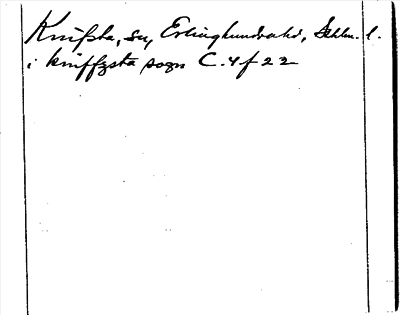 Knifsta, sn, Erlinghundrahd, Sthlm. l.
i kniffzsta sogn C. 4 f 22